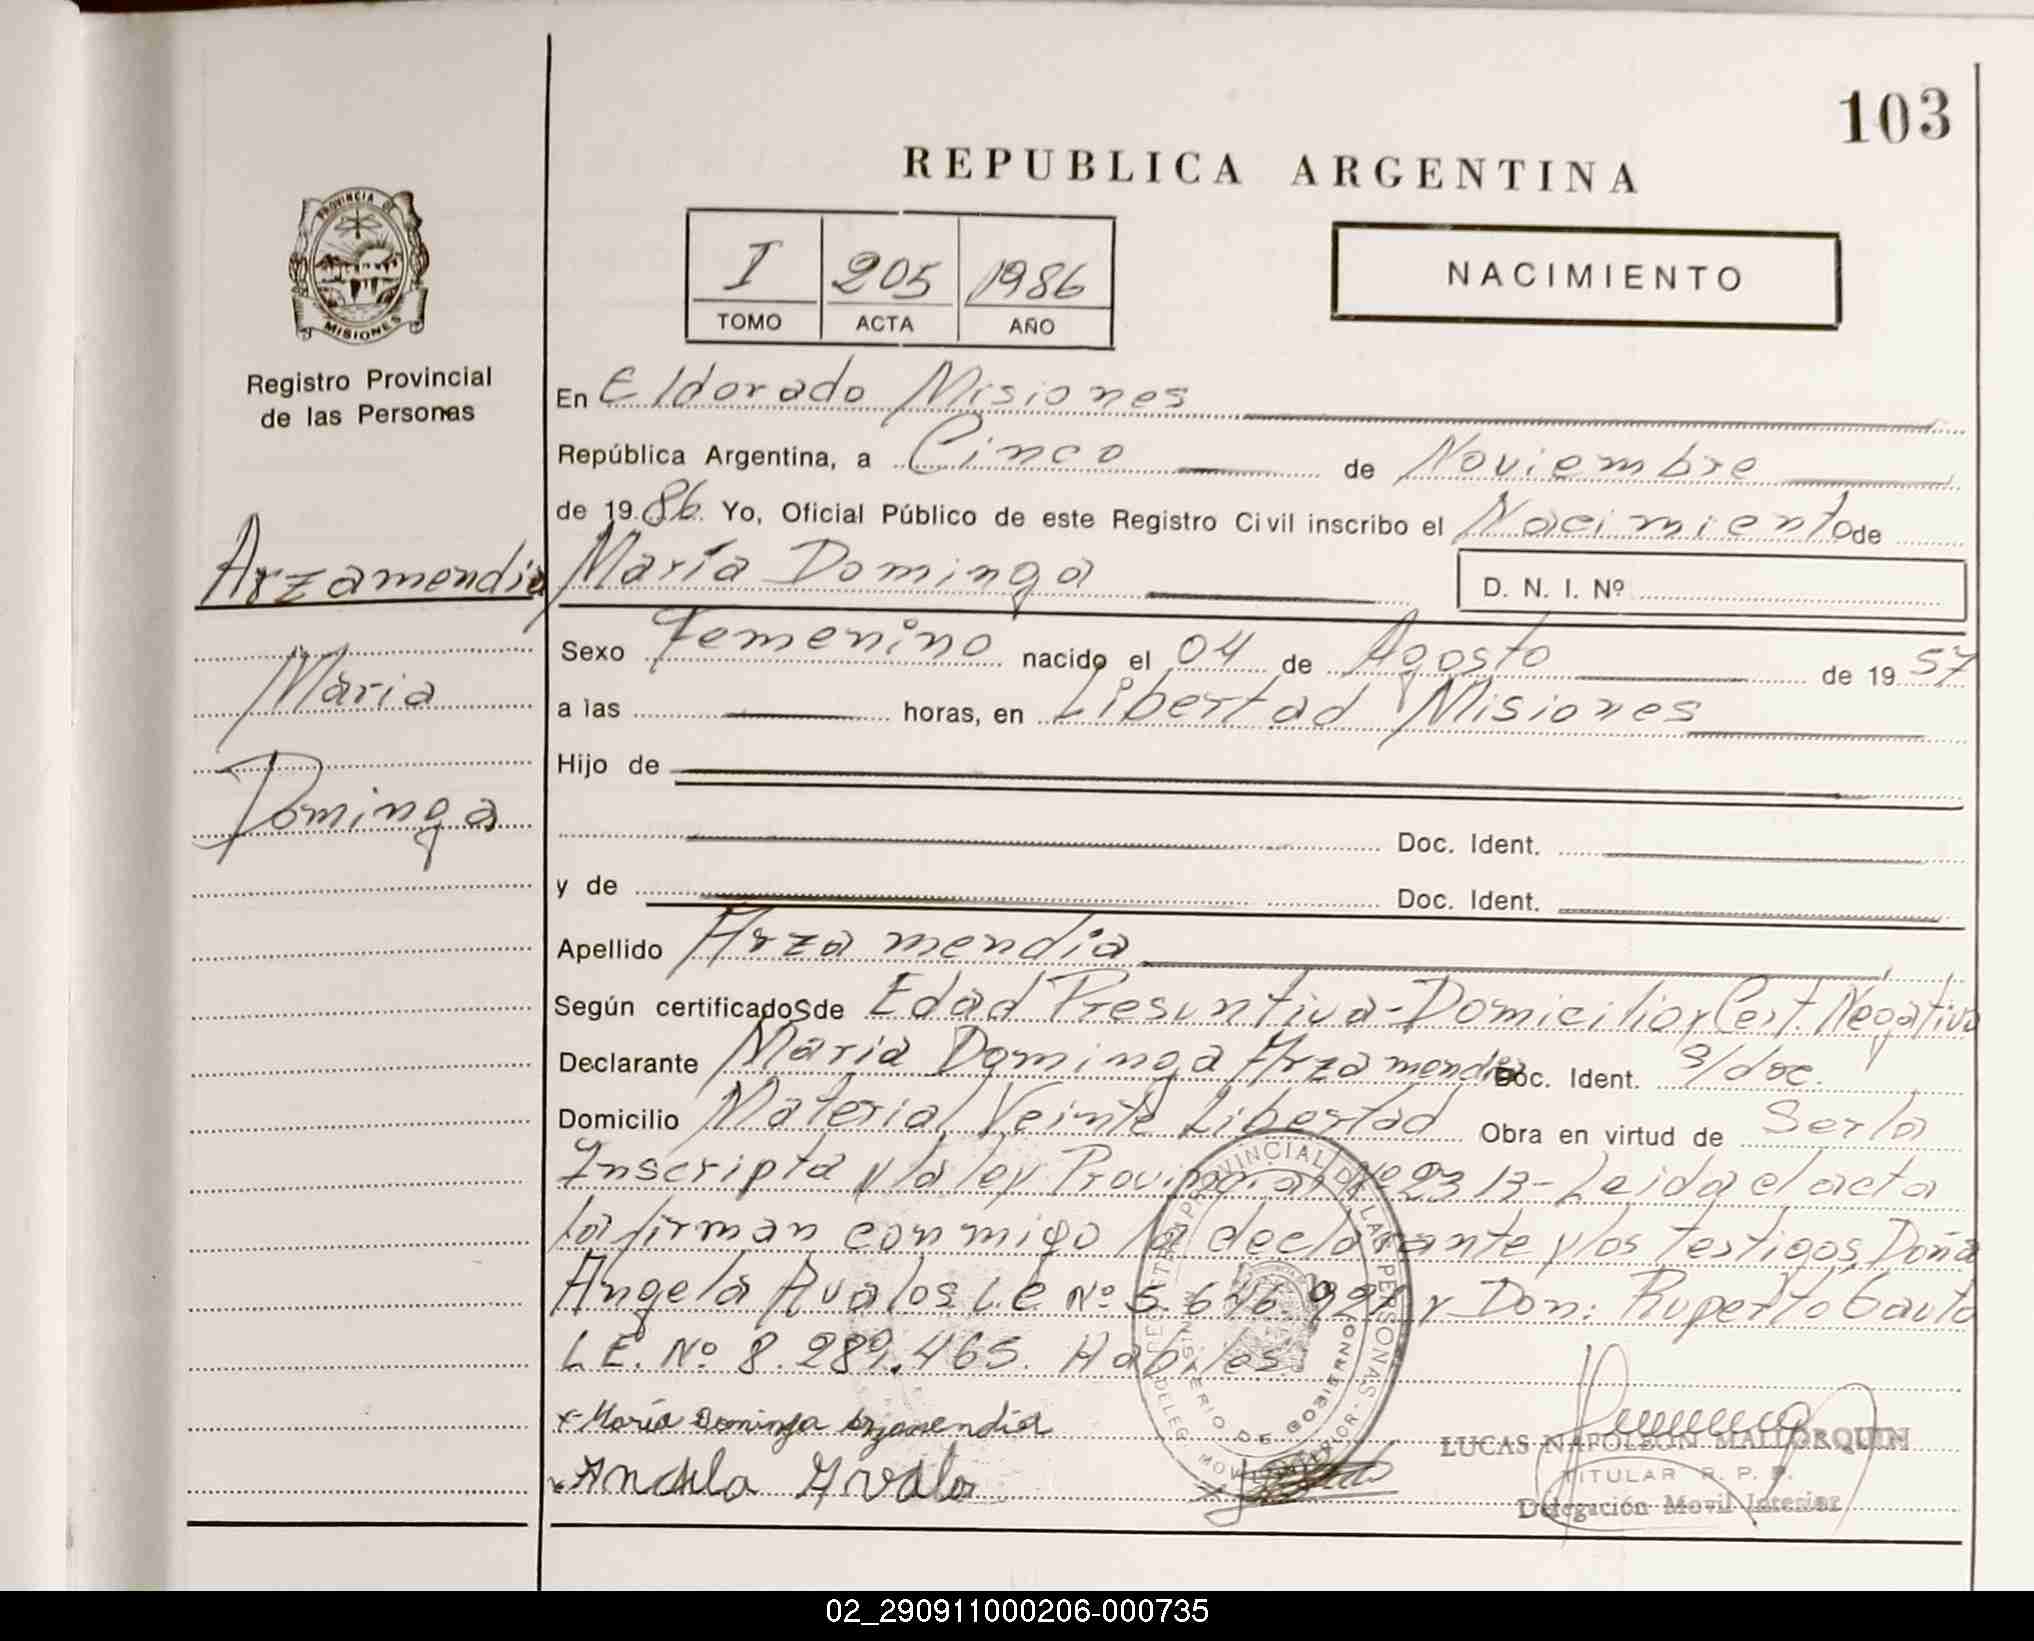 103
REPUBLICA ARGENTINA
PROVINCIA DE
MISIONES
I 205 1986
TOMO ACTA AÑO
NACIMIENTO
Registro Provincial
de las Personas
En Eldorado Misiones
República Argentina, a Cinco de Noviembre
de 1986. Yo, Oficial Público de este Registro Civil inscribo el Nacimiento de
Arzamendia
María Dominga
D. N. I. Nº
Maria
Dominga
Sexo Femenino nacido el 04 de Agosto de 1957
a las horas, en Libertad Misiones
Hijo de
Doc. Ident.
y de Doc. Ident.
Apellido Arzamendia
Según certificadoSde Edad Presuntiva-Domicilio y Cert. Negativo
Declarante Maria Dominga Arzamendia Doc. Ident. s/doc.
Domicilio Material Veinte Libertad Obra en virtud de Ser la
Inscripta y la ley Provincial Nº 2313- Leida el acta
la firman conmigo la declarante y los testigos, Doña
Angela Avalos L.C Nº 5.646.921 y Don: Ruperto Gauto
L.E. Nº 8.289.465. Habiles.
x-María Dominga Arzamendia
Angela Avalo
PROVINCIAL DE LAS PERSONAS
MINISTERIO DE GOBIERNO
LUCAS NAPOLEON MALLORQUIN
TITULAR R. P. P.
Delegación Movil Interior
02_290911000206-000735